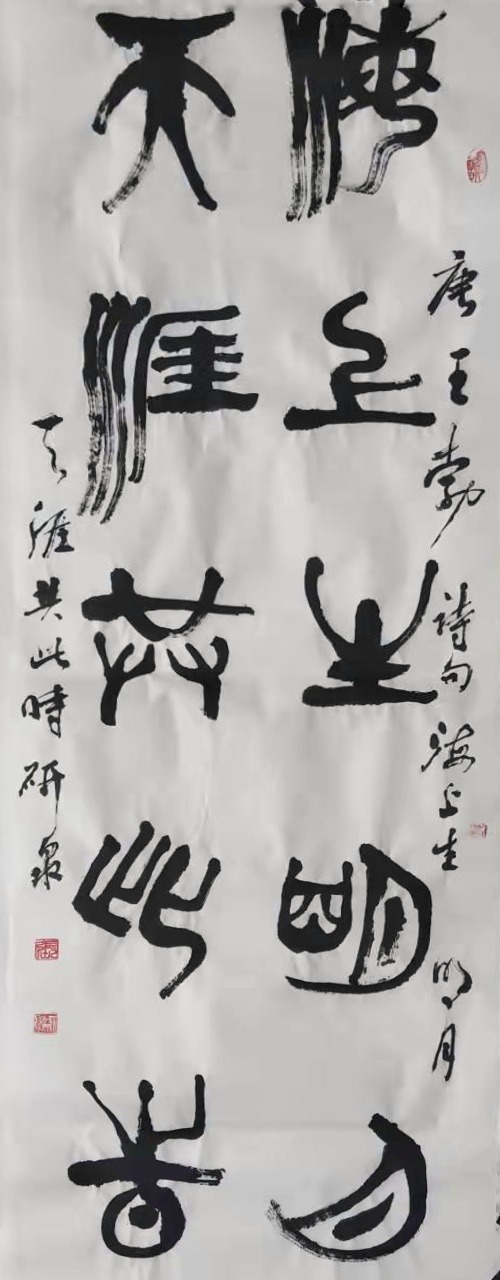 唐王勃詩句海上生明月
海上生明月
天涯共此時
天涯共此時研泉